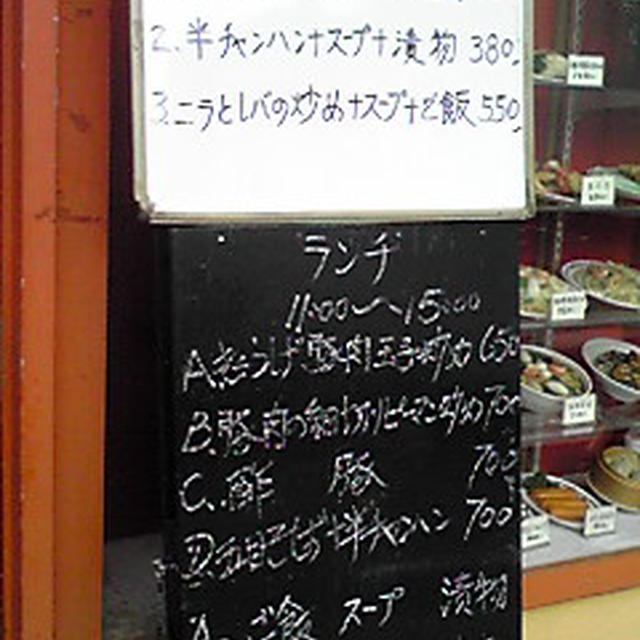 2. 半チャンハン+スープ+漬物 380
3. ニラとレバの炒め+スープ+ご飯 550
ランチ
11:00〜15:00
A. きくらげ豚肉玉子炒め 650
B. 豚肉の細切りピーマン炒め 700
C. 酢豚 700
D. 五目そば+半チャーハン 700
A. ご飯 スープ 漬物